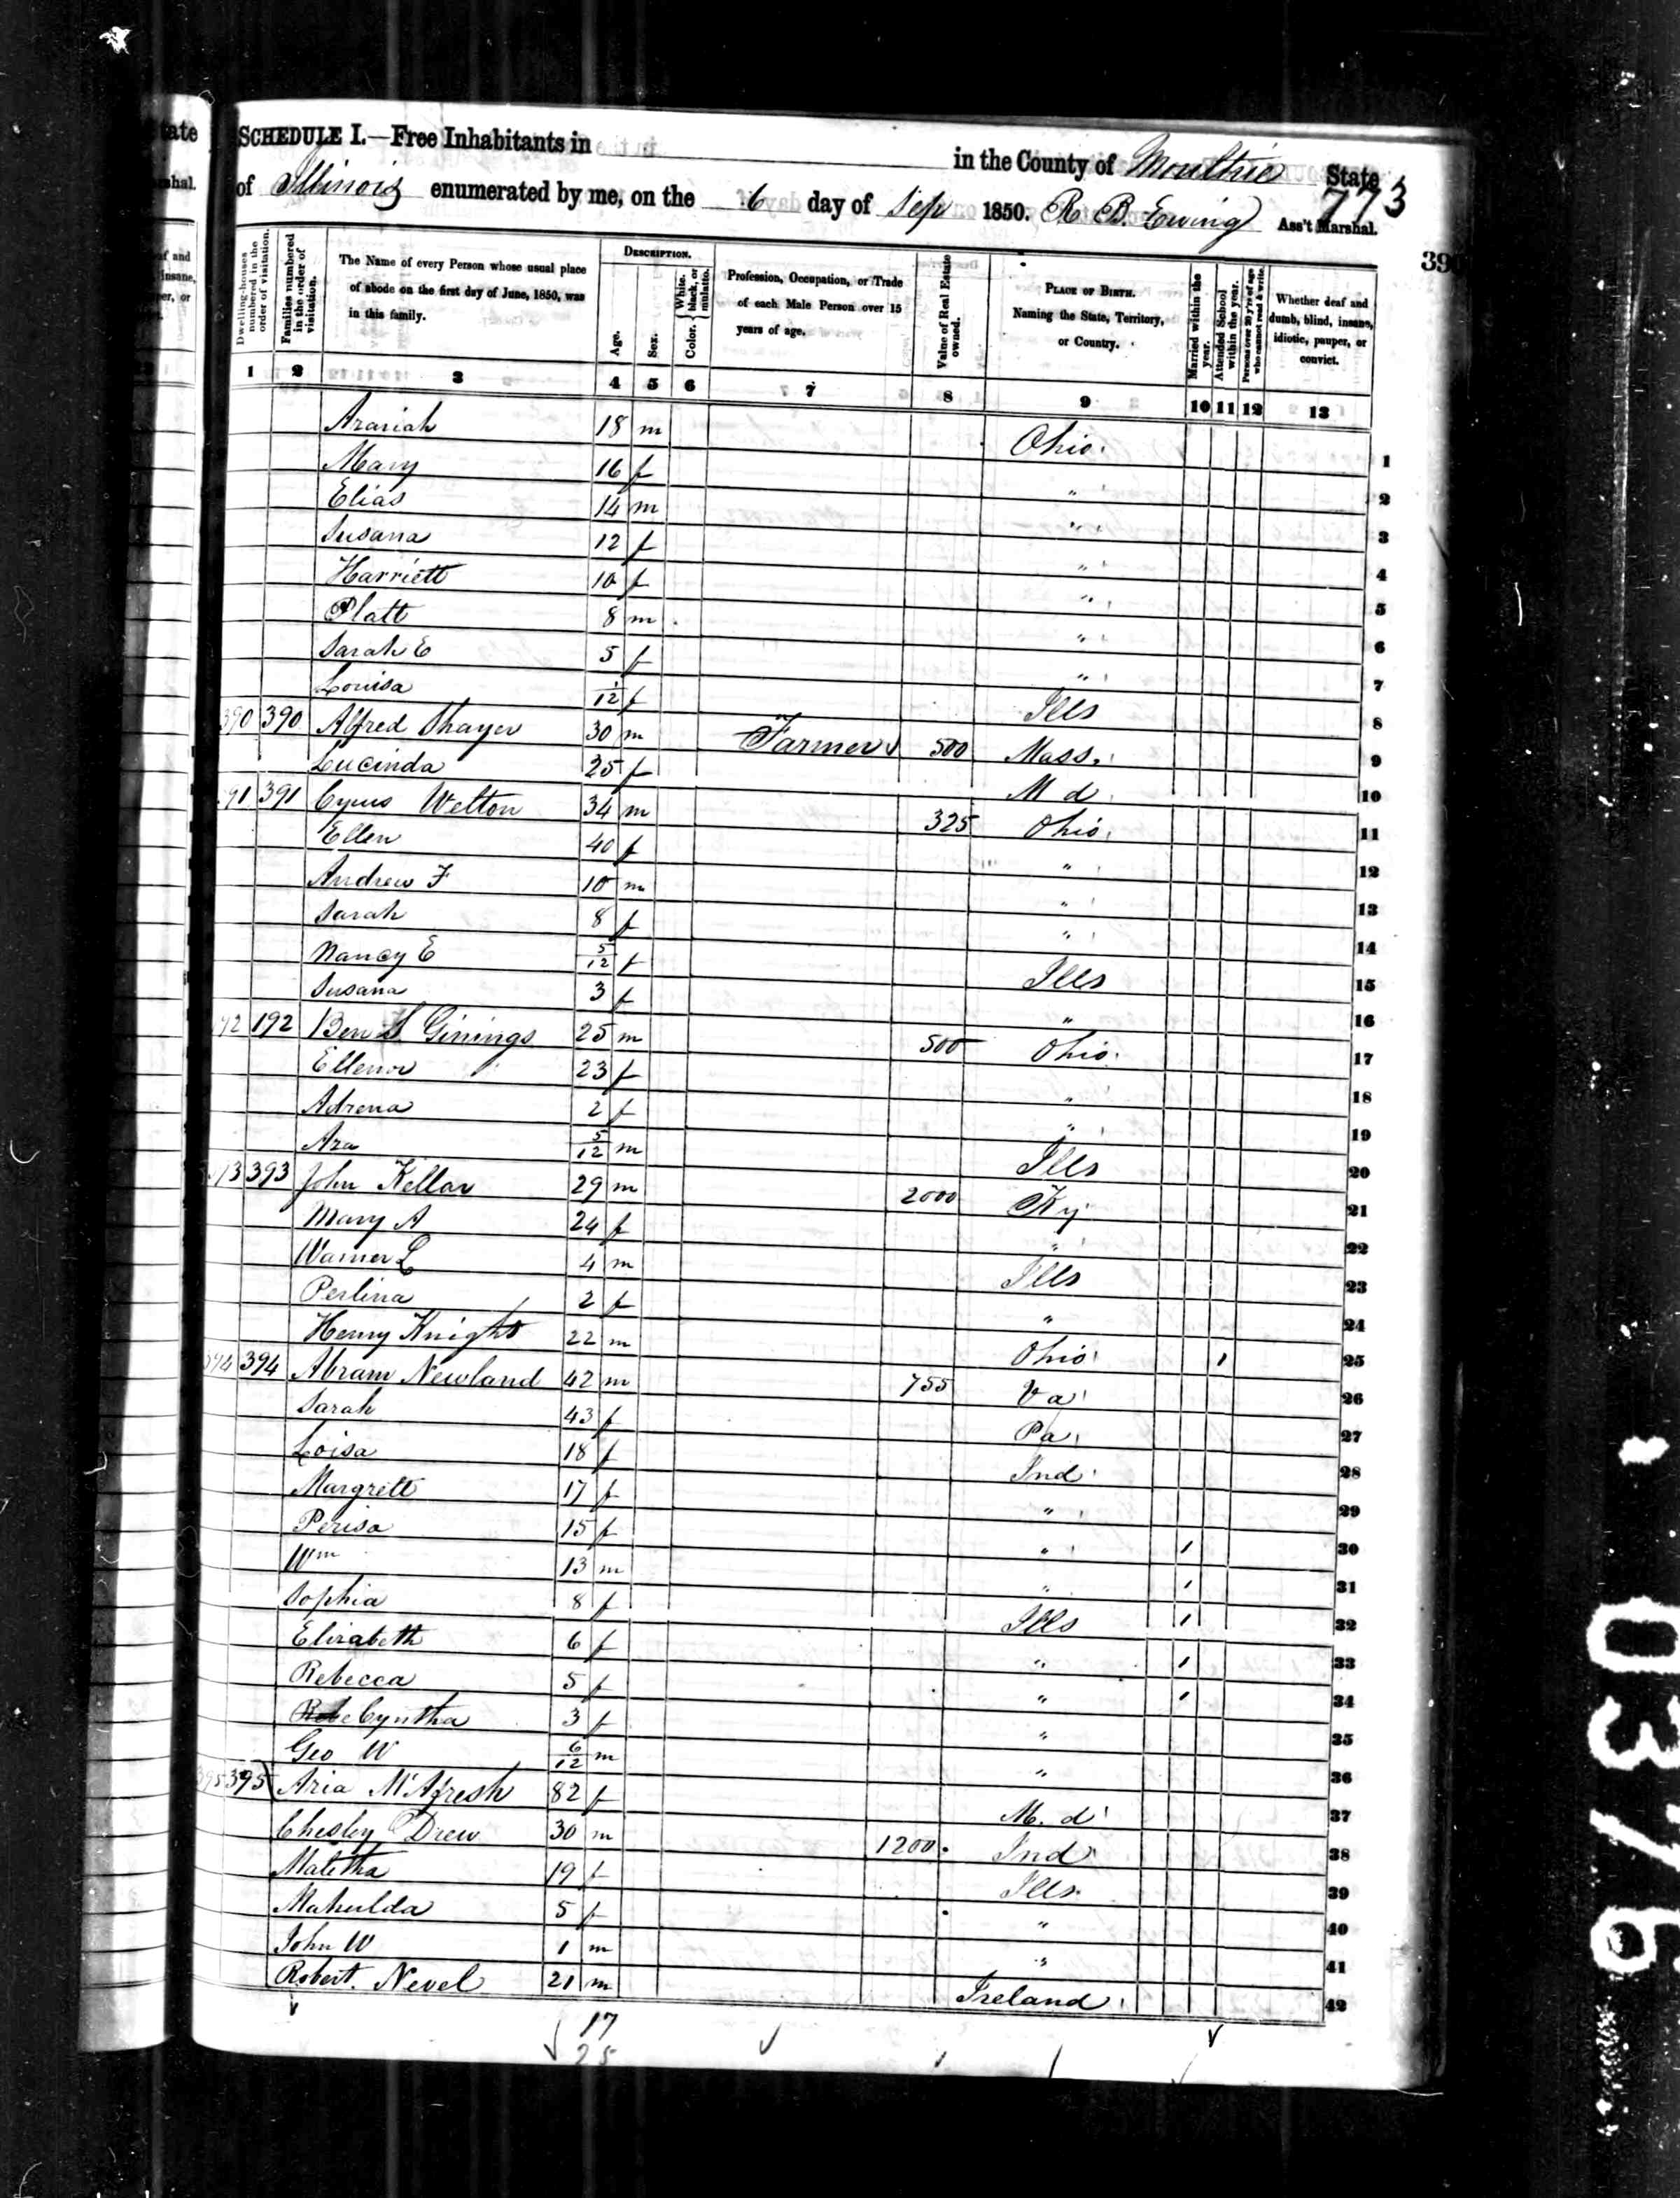 SCHEDULE I.—Free Inhabitants in in the County of Moultrie State
of Illinois enumerated by me, on the 6 day of Sep 1850. R. B. Ewing Ass't Marshal.
773
Dwelling-houses numbered in the order of visitation.
Families numbered in the order of visitation.
The Name of every Person whose usual place of abode on the first day of June, 1850, was in this family.
DESCRIPTION.
Age.
Sex.
Color. White, black, or mulatto.
Profession, Occupation, or Trade of each Male Person over 15 years of age.
Value of Real Estate owned.
PLACE OF BIRTH. Naming the State, Territory, or Country.
Married within the year.
Attended School within the year.
Persons over 20 y'rs of age who cannot read & write.
Whether deaf and dumb, blind, insane, idiotic, pauper, or convict.
1 2 3 4 5 6 7 8 9 10 11 12 13
Azariah 18 m Ohio 1
Mary 16 f " 2
Elias 14 m " 3
Susana 12 f " 4
Harriett 10 f " 5
Platt 8 m " 6
Sarah E 5 f " 7
Louisa 1/12 f Ills 8
390 390 Alfred Thayer 30 m Farmer 500 Mass. 9
Lucinda 25 f Md 10
391 391 Cyrus Welton 34 m 325 Ohio 11
Ellen 40 f " 12
Andrew F 10 m " 13
Sarah 8 f " 14
Nancy E 5/12 f Ills 15
Susana 3 f " 16
92 192 Ben S Ginings 25 m 500 Ohio 17
Ellenor 23 f " 18
Adrena 2 f " 19
Aza 5/12 m Ills 20
393 393 John Kellar 29 m 2000 Ky 21
Mary A 24 f " 22
Warner L 4 m Ills 23
Perlina 2 f " 24
Henry Knight 22 m Ohio 1 25
394 394 Abram Newland 42 m 755 Va 26
Sarah 43 f Pa 27
Loisa 18 f Ind 28
Margrett 17 f " 29
Perisa 15 f " 1 30
Wm 13 m " 1 31
Sophia 8 f Ills 1 32
Elizabeth 6 f " 1 33
Rebecca 5 f " 1 34
Cyntha 3 f " 35
Geo W 6/12 m " 36
395 395 Aria 82 f M.d 37
Chesley Drew 30 m 1200 Ind 38
Maletha 19 f Ills 39
Mahulda 5 f " 40
John W 1 m " 41
Robert Nevel 21 m Ireland 42
17
25
0376